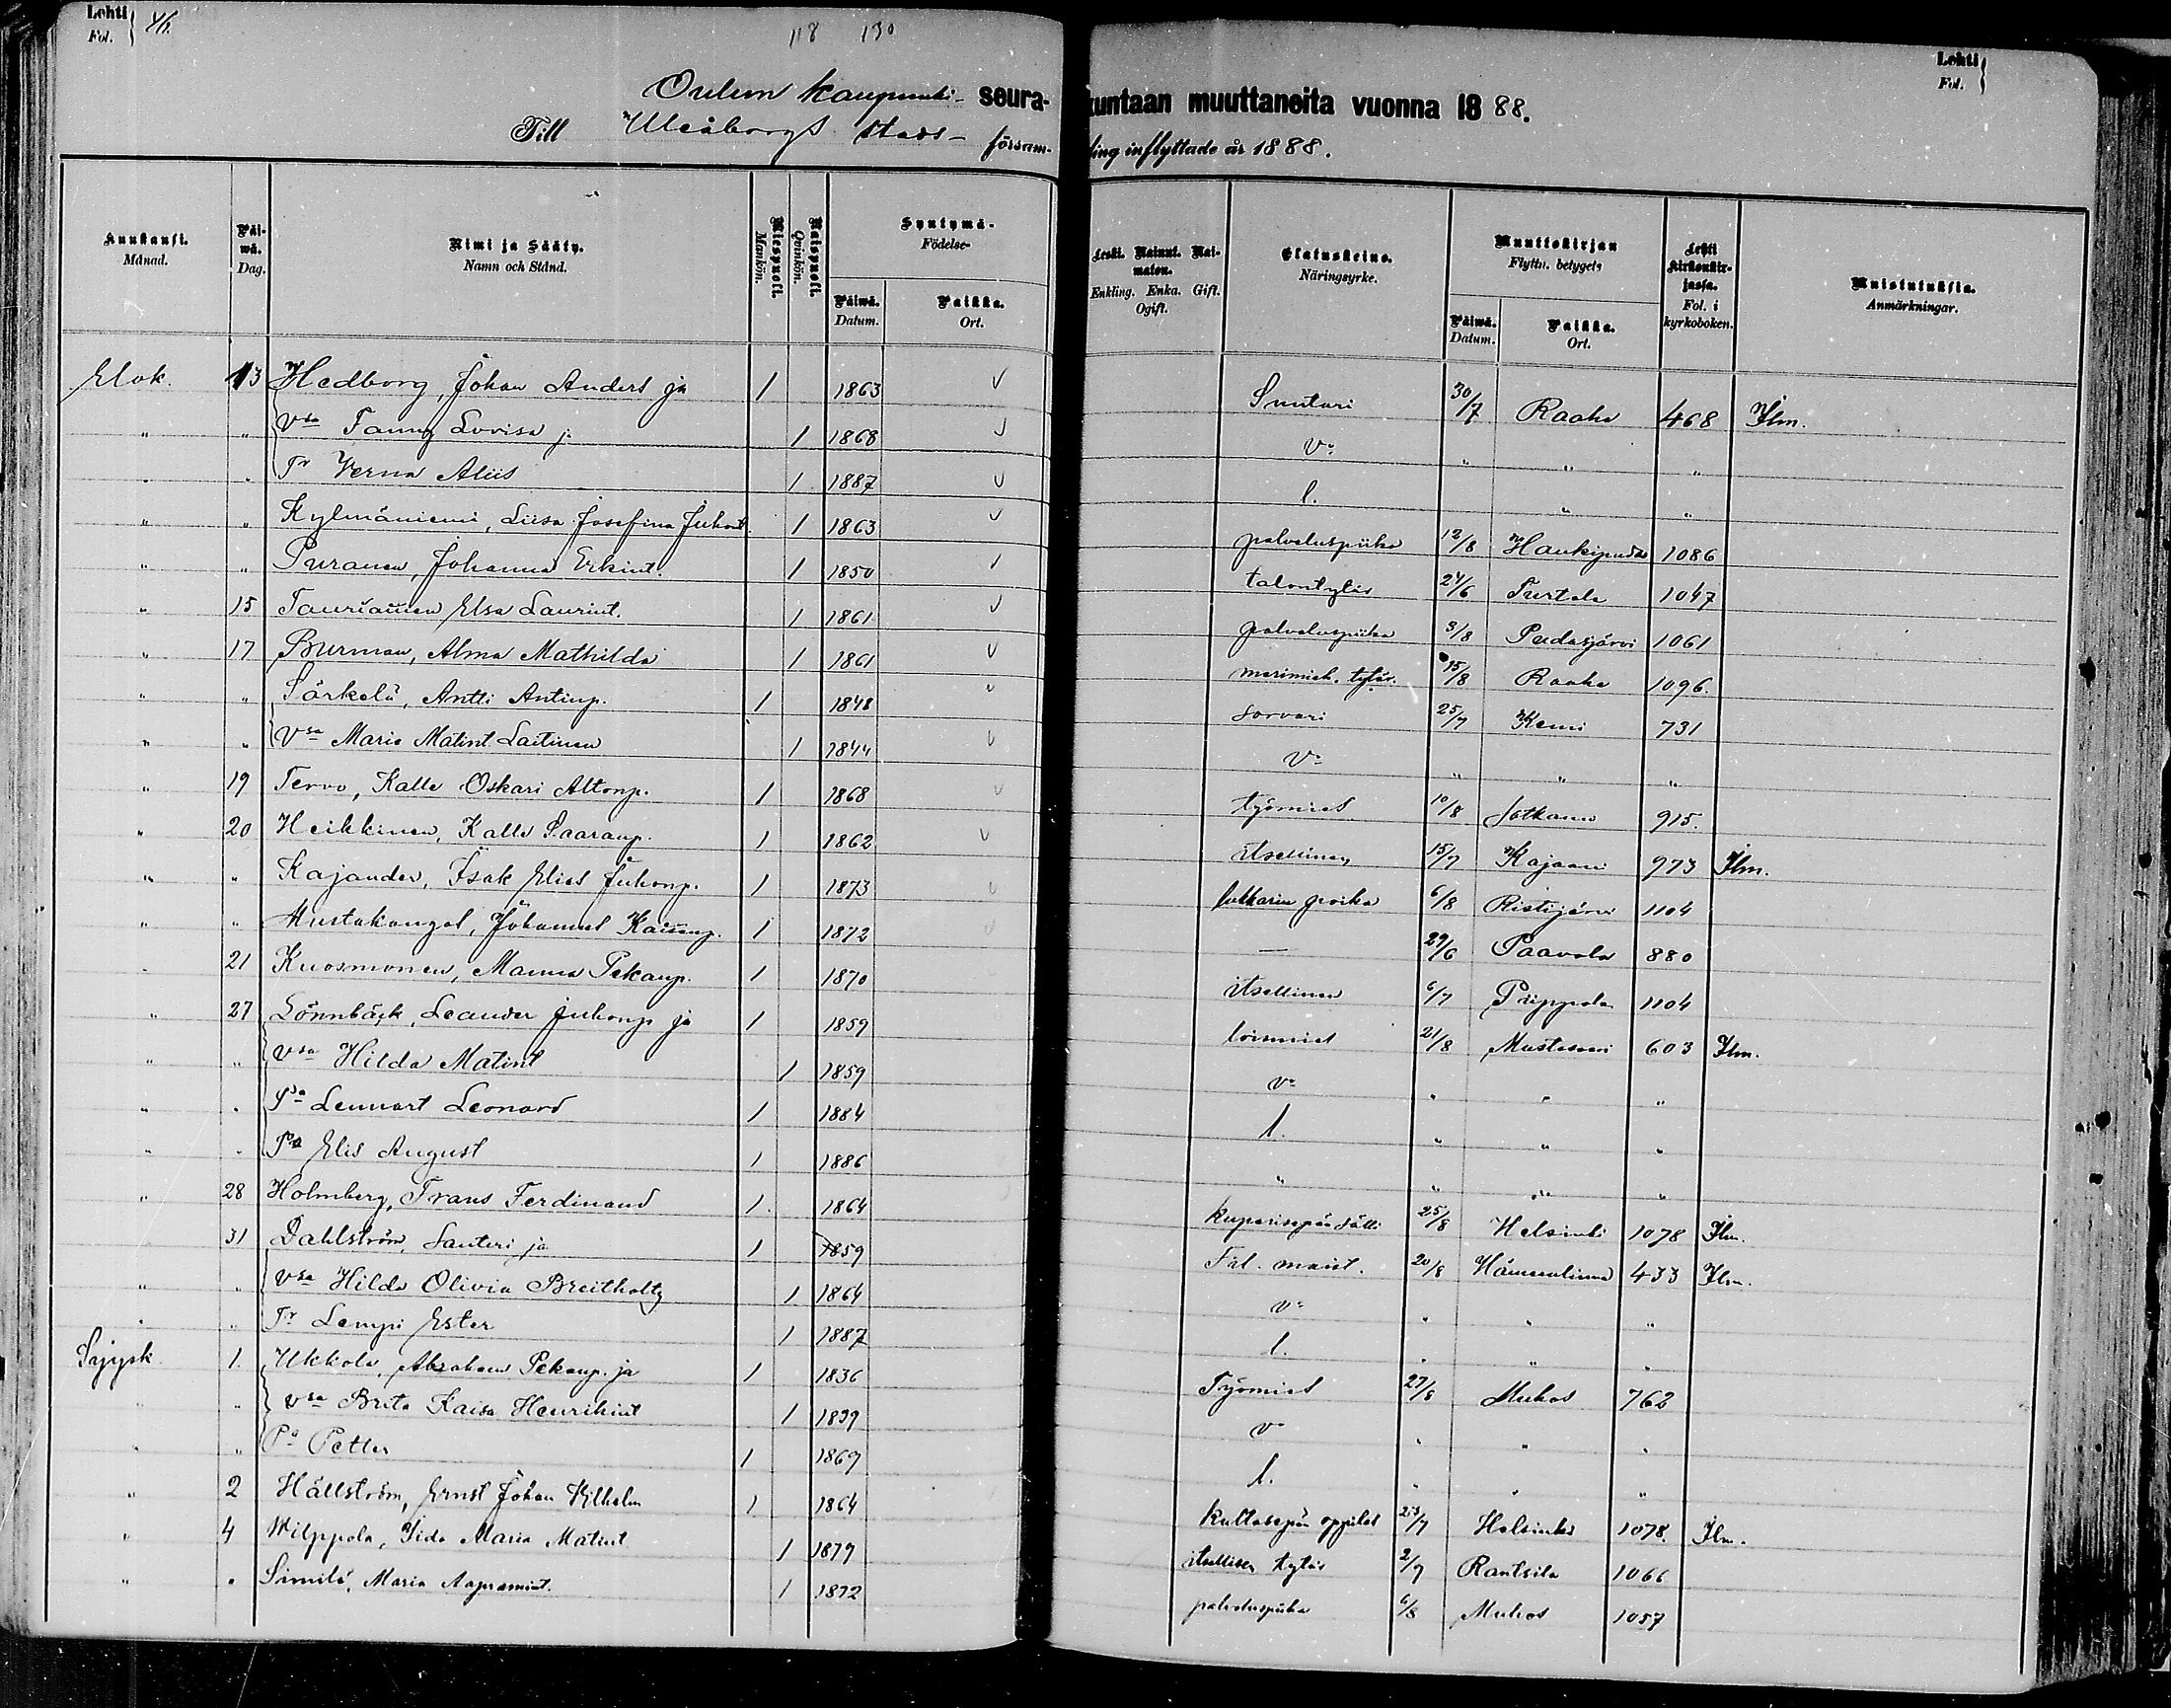 Lehti Fol. 46. 118 130 Lehti Fol.
Oulun kaupunki- seurakuntaan muuttaneita vuonna 1888.
Till Uleåborgs stads- församling inflyttade år 1888.
Kuukausi. Månad. Päiwä. Dag. Nimi ja Sääty. Namn och Stånd. Miespuoli. Mankön. Naispuoli. Qvinkön. Syntymä- Födelse- Päiwä. Datum. Paikka. Ort. Leski. Nainut. Naimaton. Enkling. Enka. Gift. Ogift. Elatuskeino. Näringsyrke. Muuttokirjan Flyttn. betygets Päiwä. Datum. Paikka. Ort. Lehti Kirkonkirjassa. Fol. i kyrkoboken. Muistutuksia. Anmärkningar.
Elok. 13 Hedborg, Johan Anders ja 1 1863 Suutari 30/7 Raahe 468 Ilm.
" " Vsa Fanny Lovisa ja 1 1868 Vo " " "
" " Tr Verna Aliis 1 1887 l. " "
" " Kylmäniemi, Liisa Josefina Juhont. 1 1863 palveluspiika 12/8 Haukipudas 1086
" " Puranen, Johanna Erkint. 1 1850 talontytär 24/6 Turtola 1047
" 15 Tauriainen Elsa Laurint. 1 1861 palveluspiika 3/8 Pudasjärvi 1061
" 17 Burman, Alma Mathilda 1 1861 merimieh. tytär. 15/8 Raahe 1096.
" " Särkelä, Antti Antinp. 1 1848 sorvari 25/7 Kemi 731
" " Vsa Maria Matint. Laitinen 1 1844 Vo " " "
" 19 Tervo, Kalle Oskari 1 1868 työmies 10/8 Sotkamo 915.
" 20 Heikkinen, Kalle Saaranp. 1 1862 itsellinen 15/7 Kajaani 973 Ilm.
" " Kajander, Isak Elias Juhonp. 1 1873 poika 6/8 Ristijärvi 1104
" " Mustakangas, Johannes Kaisanp. 1 1872 — 29/6 Paavola 880
" 21 Kuosmonen, Mannu Pekanp. 1 1870 itsellinen 6/7 Piippola 1104
" 27 Lönnbäck, Leander Juhonp. ja 1 1859 loismies 21/8 Mustasaari 603 Ilm.
" " Vsa Hilda Matint 1 1859 vo " " "
" " Psa Lennart Leonard 1 1884 l. " " "
" " Psa Elis August 1 1886 " " " "
" 28 Holmberg, Frans Ferdinand 1 1864 kuparisepän sälli 25/8 Helsinki 1078 Ilm.
31 Dahlström, Santeri ja 1 1859 Fil. maist. 20/8 Hämeenlinna 433 Ilm.
" " Vsa Hilda Olivia Breitholtz 1 1864 vo " " "
" " Tr Lempi Ester 1 1887 l. " " "
Syysk. 1. Ukkola, Abraham Pekanp. ja 1 1836 Työmies 27/8 Muhos 762
" " Vsa Brita Kaisa Henrikint 1 1839 vo " " "
" " Po Petter 1 1869 l. " " "
" 2 Hällström, Ernst Johan Vilhelm 1 1864 kultasepän oppilas 23/7 Helsinki 1078. Ilm.
" 4 Wilppola, Iida Maria Matint 1 1879 itsellisen tytär 2/9 Rantsila 1066
" " Similä, Maria Aapramint. 1 1872 palveluspiika 6/8 Muhos 1057